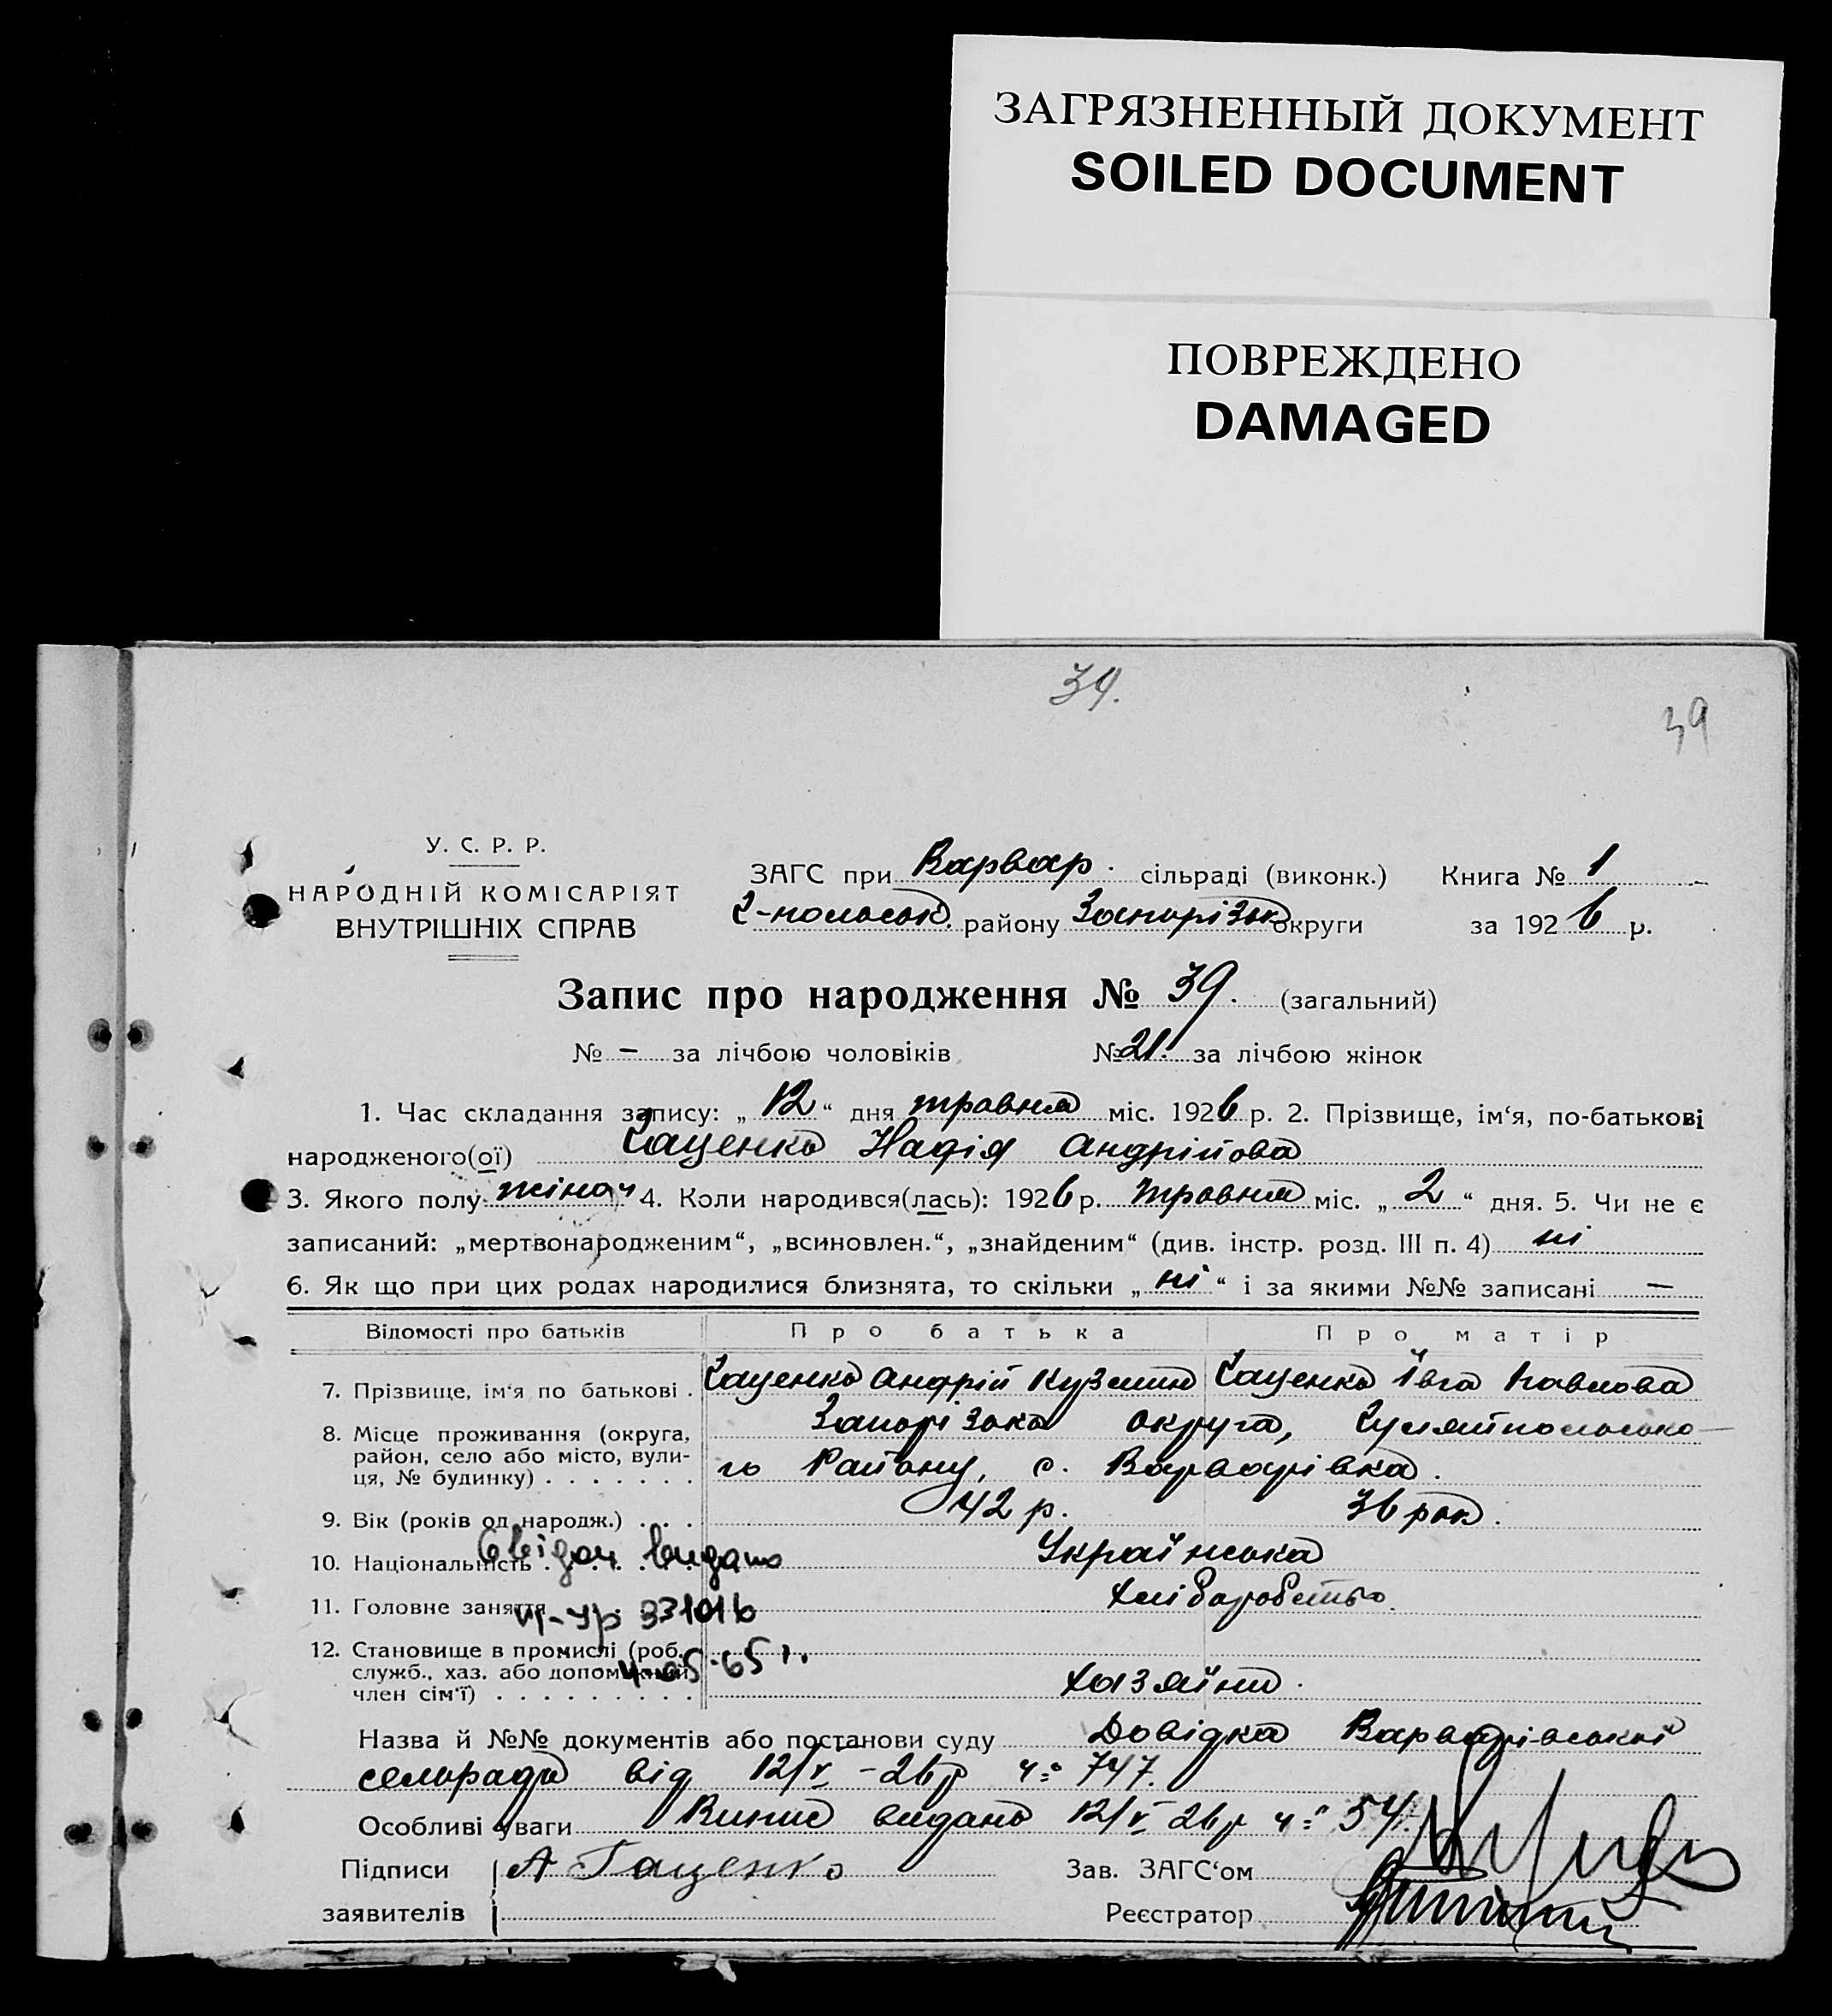 ЗАГРЯЗНЕННЫЙ ДОКУМЕНТ
SOILED DOCUMENT
ПОВРЕЖДЕНО
DAMAGED
39.
39
У. С. Р. Р.
НАРОДНІЙ КОМІСАРІЯТ
ВНУТРІШНІХ СПРАВ
ЗАГС при Варвар. сільраді (виконк.) Книга № 1
Г-польськ. району Запорізьк округи за 1926 р.
Запис про народження № 39. (загальний)
№ – за лічбою чоловіків № 21. за лічбою жінок
1. Час складання запису: „12“ дня травня міс. 1926 р. 2. Прізвище, ім‘я, по-батькові
народженого(ої) Гаценко Надія Андрійова
3. Якого полу жіноч 4. Коли народився(лась): 1926 р. травня міс. „2“ дня. 5. Чи не є
записаний: „мертвонародженим“, „всиновлен.“, „знайденим“ (див. інстр. розд. III п. 4) ні
6. Як що при цих родах народилися близнята, то скільки „ні“ і за якими №№ записані —
Відомості про батьків Про батька Про матір
7. Прізвище, ім‘я по батькові . Гаценко Андрій Кузмин Гаценко Івга Павлова
8. Місце проживання (округа, Запорізька округа, Гуляйпольсько-
район, село або місто, вули- го Району, с. Варварівка.
ця, № будинку) . . . . . . .
9. Вік (років од народж.) . . . 42 р. 36 рок.
10. Національність . . . . . . Українська
Свідоч видано
11. Головне заняття Хліборобство.
331016
12. Становище в промислі (роб.
служб., хаз. або допоміжний
член сім‘ї) . . . . . . . . . Хазяйни.
4-05-65 г.
Назва й №№ документів або постанови суду Довідка Варварівської
сельради від 12/V–26 р ч: 747.
Особливі уваги Випис видано 12/V 26 р ч: 54.
Підписи А Гаценко Зав. ЗАГС‘ом
заявителів Реєстратор